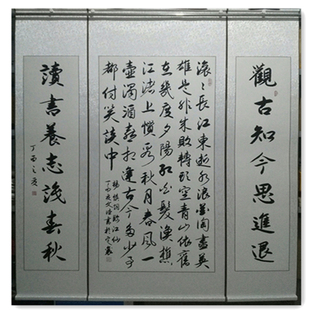 觀古知今思進退
滾滾長江東逝水浪花淘盡英
雄是非成敗轉頭空青山依舊
在幾度夕陽紅白髮漁樵
江渚上慣看秋月春風一
壺濁酒喜相逢古今多少事
都付笑談中
楊慎詞臨江仙
讀書養志識春秋
丁酉之夏